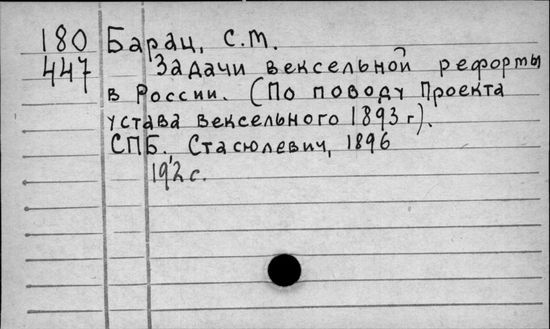 180 Барац, С.М.
447 Задачи вексельной реформы
в России. (По поводу Проекта
устава вексельного 1893 г).
СПБ. Стасюлевич, 1896
192 с.